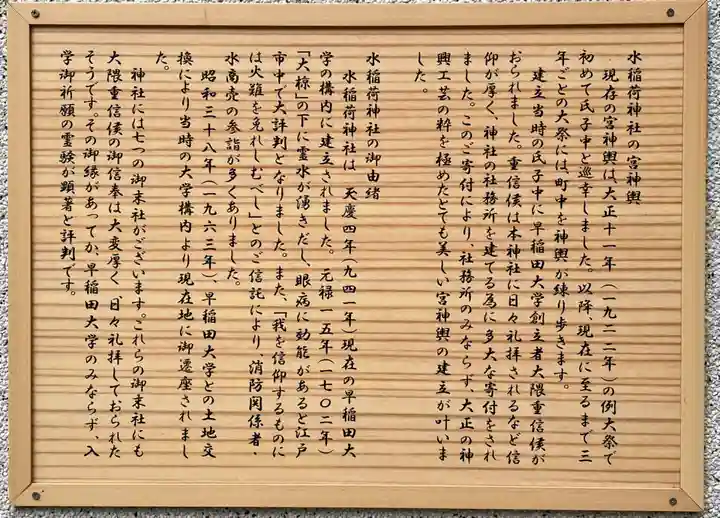 水稲荷神社の宮神輿
現存の宮神輿は大正十一年（一九二二年）の例大祭で
初めて氏子中と巡幸しました。以降、現在に至るまで三
年ごとの大祭には、町中を神輿が練り歩きます。
建立当時の氏子中に早稲田大学創立者大隈重信侯が
おられました。重信侯は本神社に日々礼拝されるなど信
仰が厚く、神社の社務所を建てる為に多大な寄付をされ
ました。このご寄付により、社務所のみならず、大正の神
興工芸の粋を極めたとても美しい宮神輿の建立が叶いま
した。
水稲荷神社の御由緒
水稲荷神社は、天慶四年（九四一年）現在の早稲田大
学の構内に建立されました。元禄一五年（一七〇二年）
「大椋」の下に霊水が湧きだし、眼病に効能があると江戸
市中で大評判となりました。また、「我を信仰するものに
は火難を免れしむべし」とのご信託により、消防関係者・
水商売の参詣が多くありました。
昭和三十八年（一九六三年）、早稲田大学との土地交
換により当時の大学構内より現在地に御遷座されまし
た。
神社には七つの御末社がございます。これらの御末社にも
大隈重信侯の御信奉は大変厚く、日々礼拝しておられた
そうです。その御縁があってか、早稲田大学のみならず、入
学御祈願の霊験が顕著と評判です。